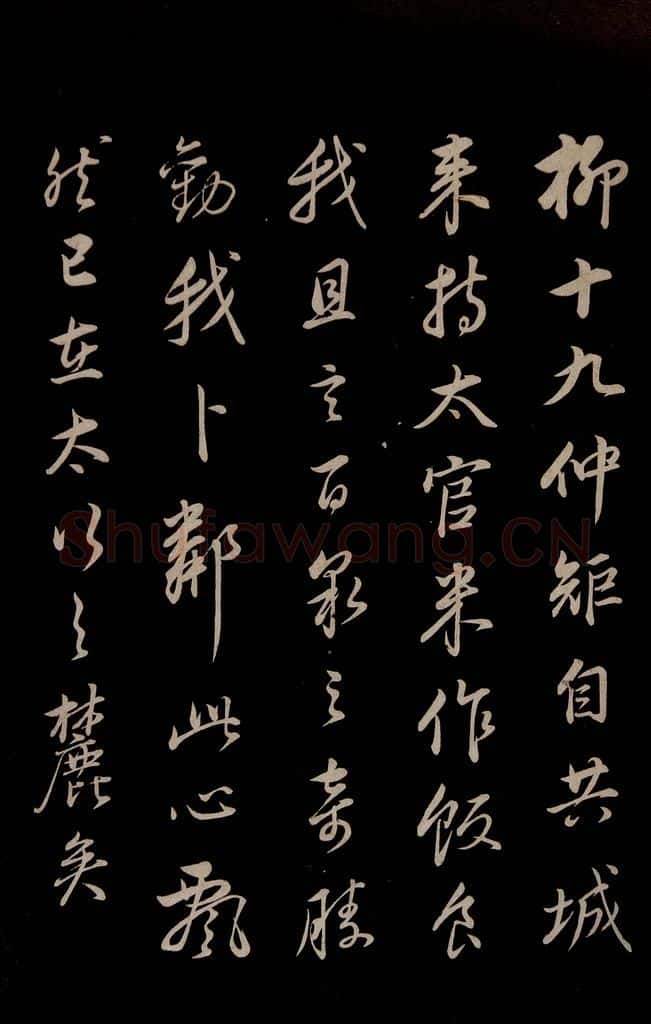 柳十九仲矩自共城
来持太官米作飯食
我且言百泉之奇勝
勸我卜鄰此心飄
然已在太行之麓矣
Shufawang.CN